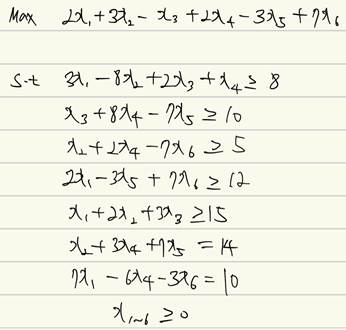 Max 2x₁+3x₂-x₃+2x₄-3x₅+7x₆
s.t 3x₁-8x₂+2x₃+x₄≥8
x₃+8x₄-7x₅≥10
x₂+2x₄-7x₆≥5
2x₁-3x₅+7x₆≥12
x₁+2x₂+3x₃≥15
x₂+3x₄+7x₅=14
7x₁-6x₄-3x₆=10
x₁~₆≥0